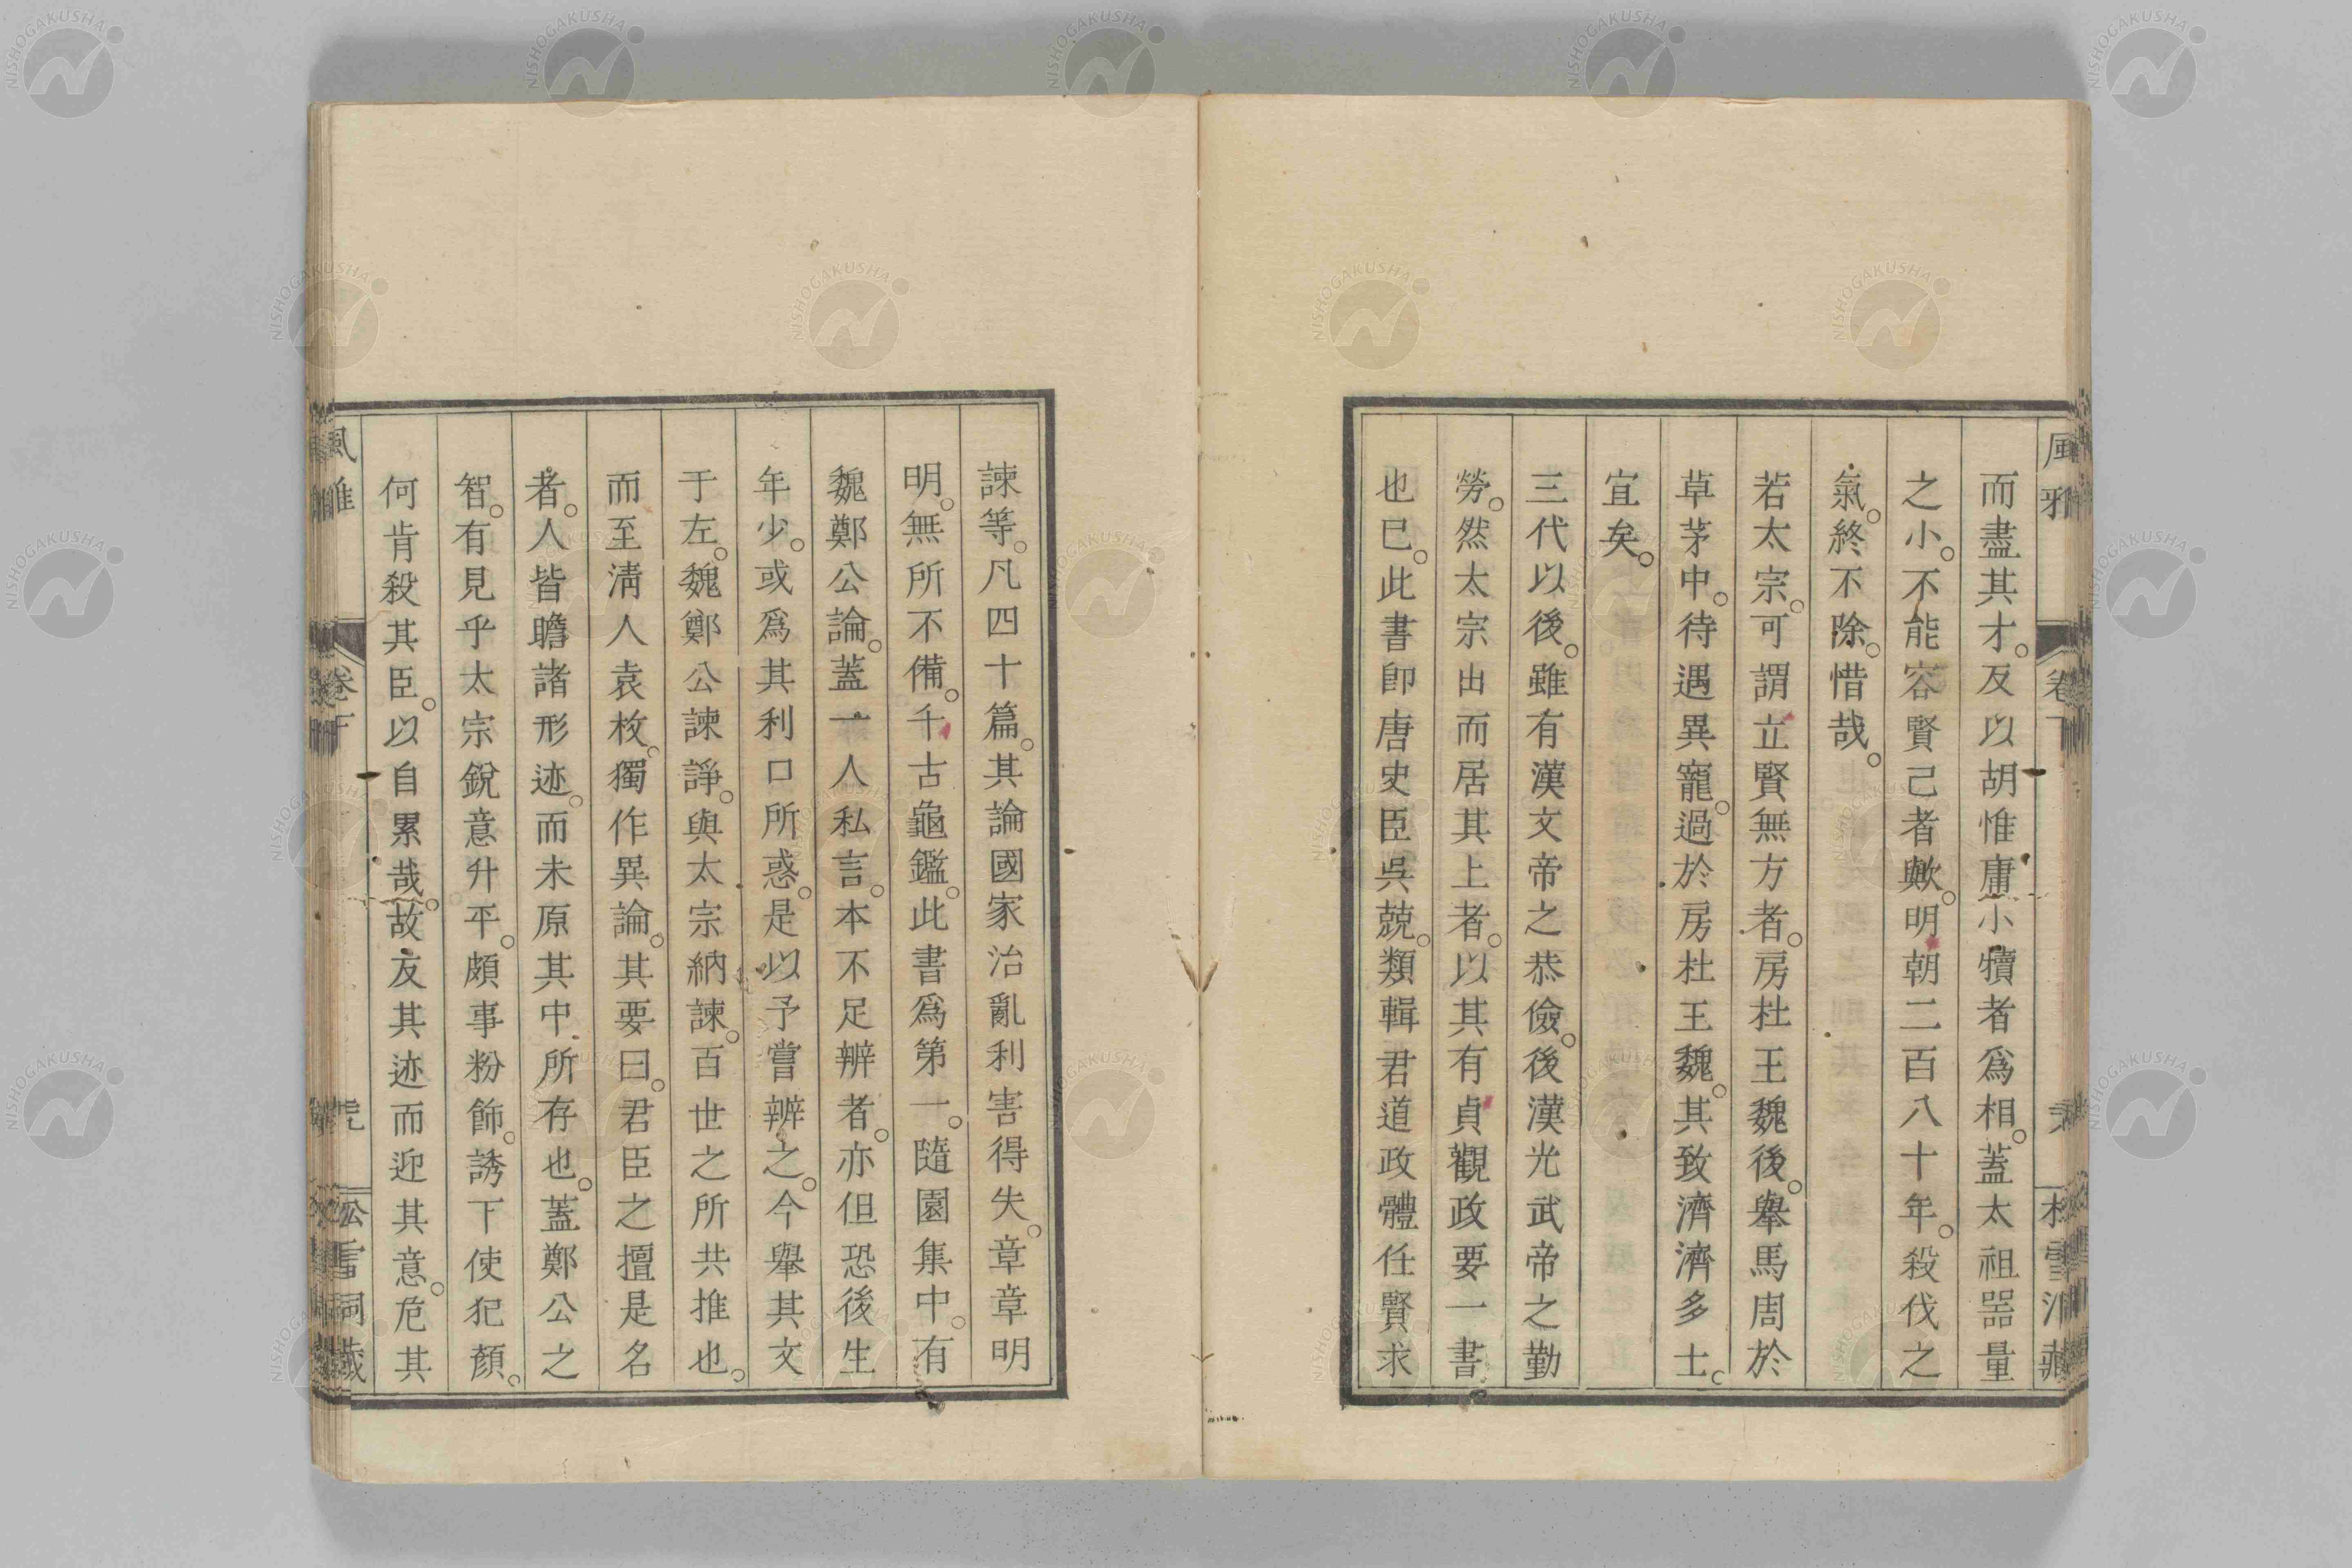 風雅
卷下
而盡其才。反以胡惟庸小犢者爲相。蓋太祖器量
之小。不能容賢己者歟。明朝二百八十年。殺伐之
氣。終不除。惜哉。
若太宗。可謂立賢無方者。房杜王魏後。舉馬周於
草茅中。待遇異寵。過於房杜王魏。其致濟濟多士。
宜矣。
三代以後。雖有漢文帝之恭儉。後漢光武帝之勤
勞。然太宗出而居其上者。以其有貞觀政要一書
也已。此書卽唐史臣吳兢。類輯君道政體任賢求
諫等。凡四十篇。其論國家治亂利害得失。章章明
明。無所不備。千古龜鑑。此書爲第一。隨園集中。有
魏鄭公論。蓋一人私言。本不足辨者。亦但恐後生
年少。或爲其利口所惑。是以予嘗辨之。今舉其文
于左。魏鄭公諫諍。與太宗納諫。百世之所共推也。
而至淸人袁枚。獨作異論。其要曰。君臣之擅是名
者。人皆瞻諸形迹。而未原其中所存也。蓋鄭公之
智。有見乎太宗銳意升平。頗事粉飾。誘下使犯顏。
何肯殺其臣。以自累哉。故友其迹而迎其意。危其
風雅
卷下
松雪洞藏
NISHOGAKUSHA